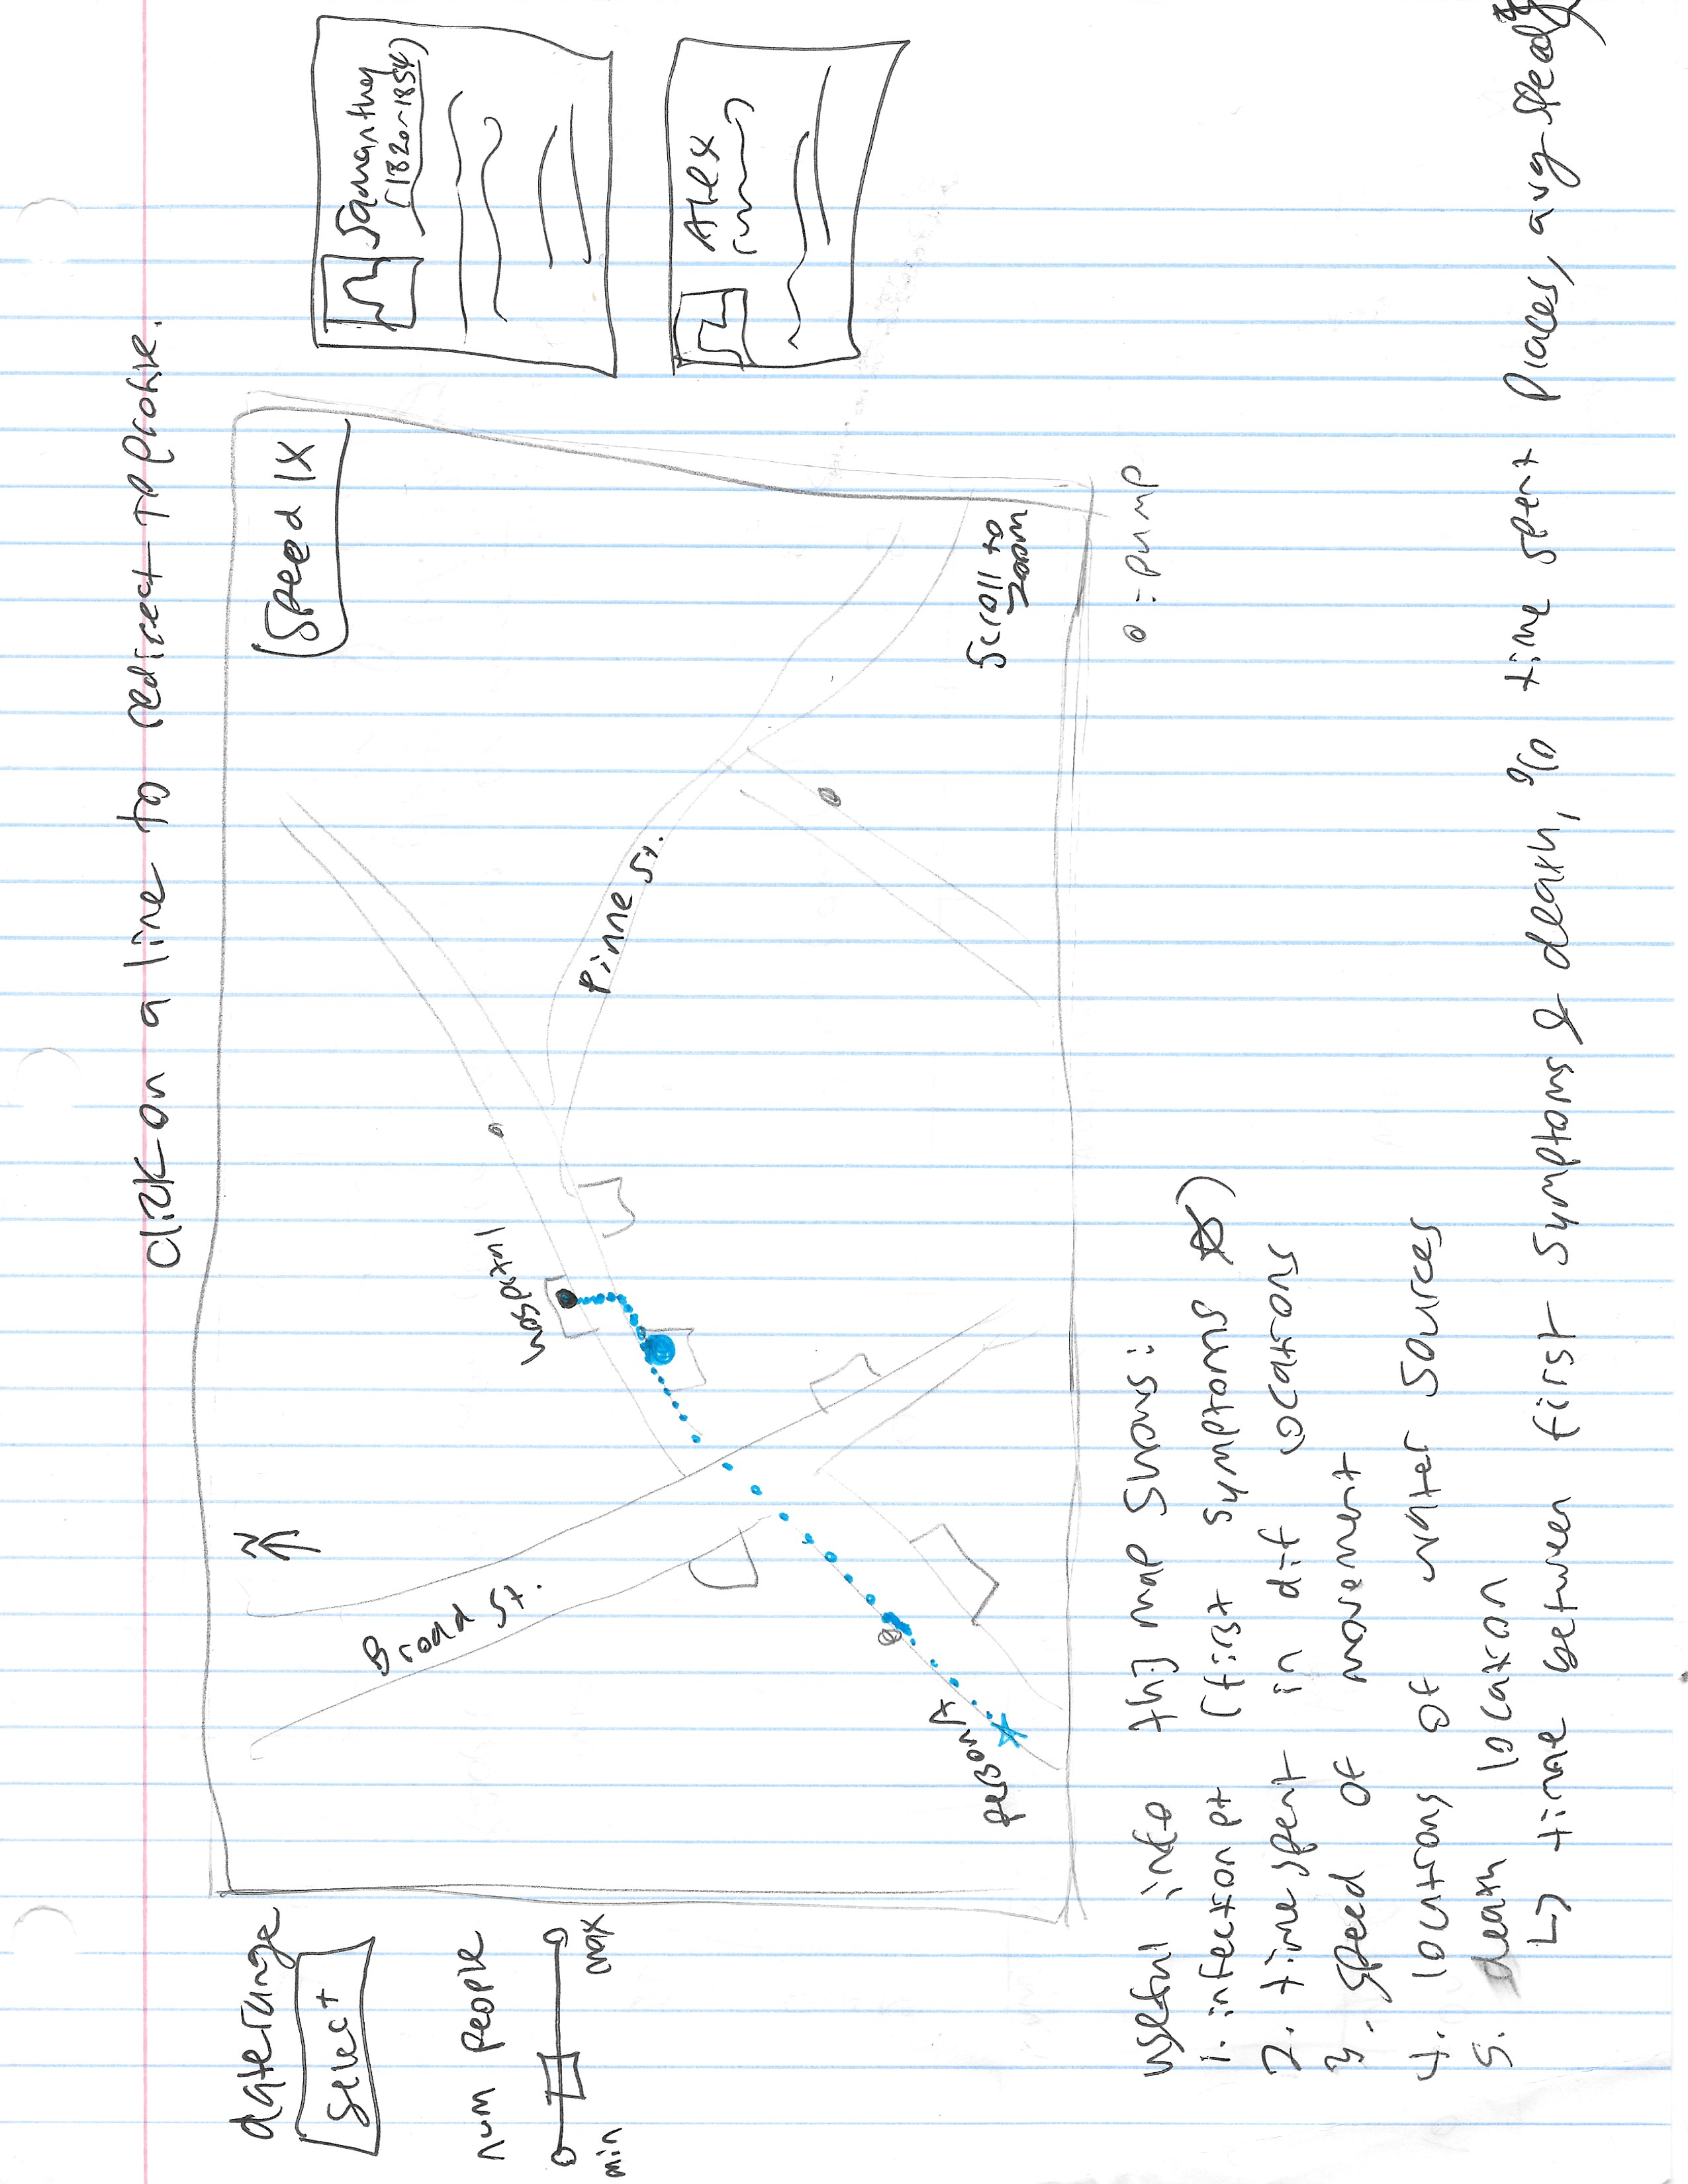 Click on a line to redirect to profile.
daterange
Select
num people
min
max
N
Speed 1X
Broad St.
hospital
Pinne St.
personA
Scroll to
zoom
o = pump
Samantha
(1820-1854)
Alex
useful info this map shows:
1. infection pt (first symptoms ☆)
2. time spent in dif locations
3. speed of movement
4. locations of water sources
5. death location
↳ time between first symptoms & death, % time spent places, avg speed